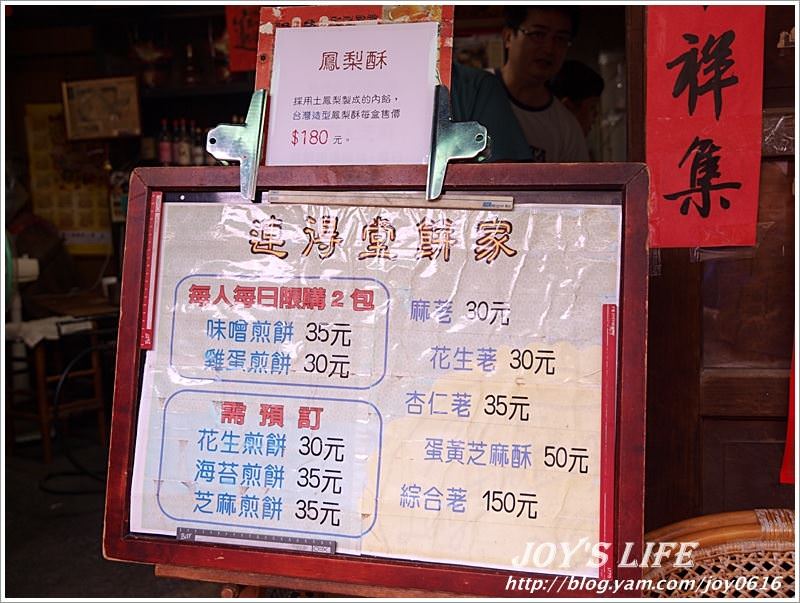 鳳梨酥
採用土鳳梨製成的內餡，
台灣造型鳳梨酥每盒售價
$180 元。
祥
集
連得堂餅家
每人每日限購2包
味噌煎餅 35元
雞蛋煎餅 30元
需預訂
花生煎餅 30元
海苔煎餅 35元
芝麻煎餅 35元
麻荖 30元
花生荖 30元
杏仁荖 35元
蛋黃芝麻酥 50元
綜合荖 150元
JOY'S LIFE
http://blog.yam.com/joy0616